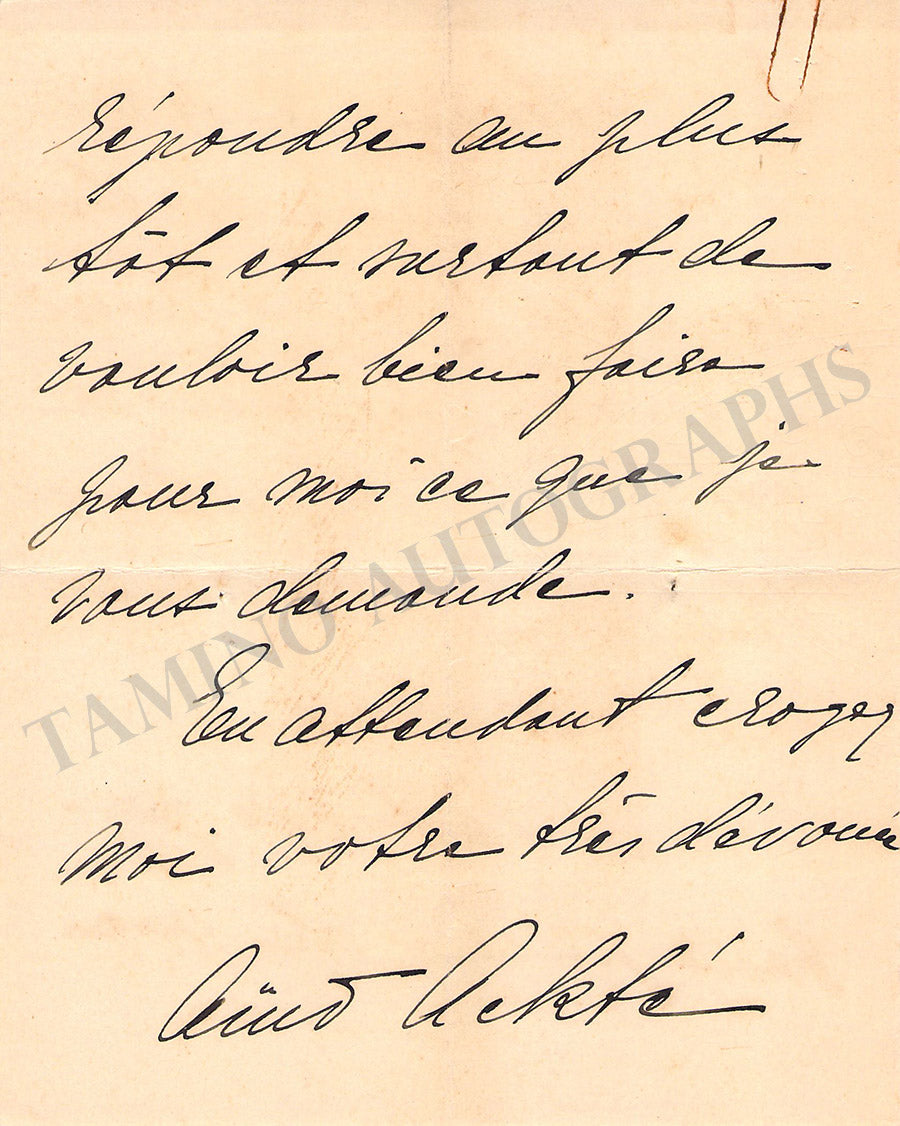 répondre au plus
tôt et surtout de
vouloir bien faire
pour moi ce que je
vous demande.
En attendant croyez
moi votre très dévouée
Aïno Ackté
TAMINO AUTOGRAPHS